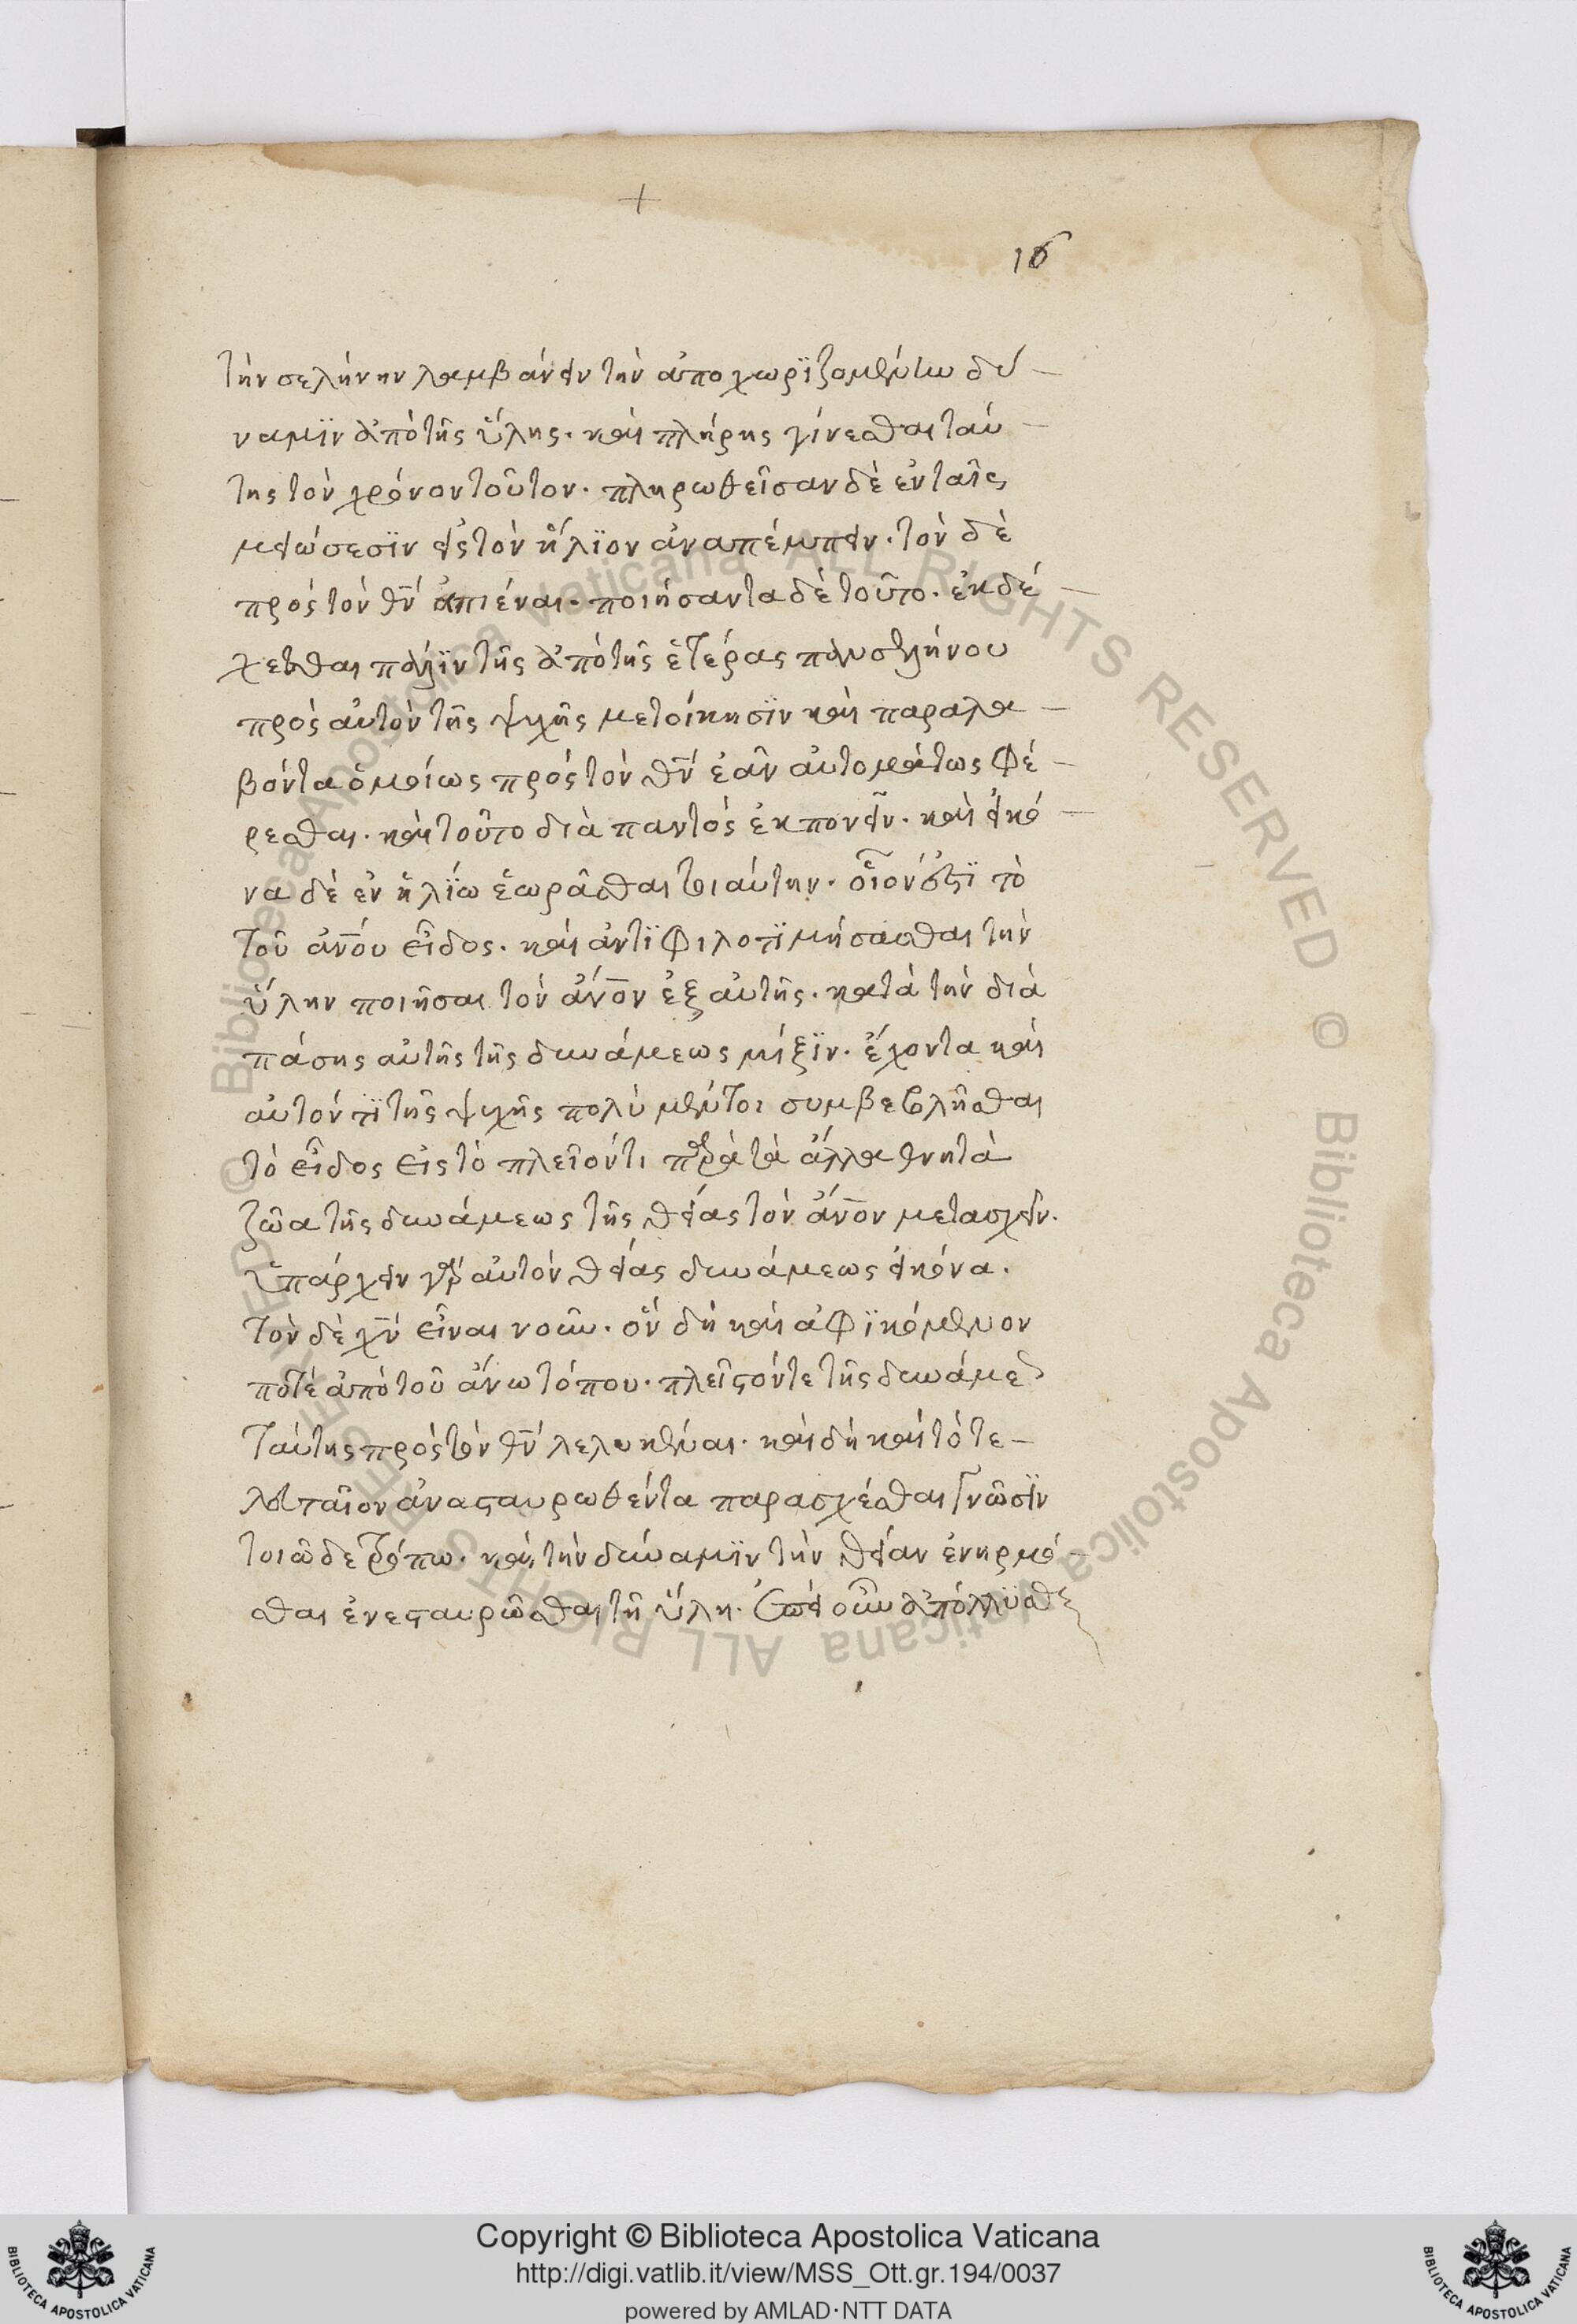 +
16
τὴν σελήνην λαμβάνειν τὴν ἀποχωρϊζομένην δύ –
ναμϊν ἀπὸ τῆς ὕλης· καὶ πλήρης γίνεσθαι ταύ –
της τὸν χρόνον τοῦτον· πληρωθεῖσαν δὲ ἐν ταῖς
μειώσεσϊν εἰς τὸν ἥλϊον ἀναπέμπειν· τὸν δὲ
πρὸς τὸν θν̄ ἀπιέναι· ποιήσαντα δὲ τοῦτο· ἐκδέ –
χεσθαι πάλϊν τῆς ἀπὸ τῆς ἑτέρας πανσελήνου
πρὸς αὐτὸν τῆς ψυχῆς μετοίκησϊν καὶ παραλα –
βόντα ὁμοίως πρὸς τὸν θν̄ ἐᾶν αὐτομάτως φέ –
ρεσθαι· καὶ τοῦτο διὰ παντὸς ἐκπονεῖν· καὶ εἰκό –
να δὲ ἐν ἡλίω ἑωρᾶσθαι τοιαύτην· οἷόν ἐστϊ τὸ
τοῦ ἀν̄ου εἶδος· καὶ ἀντϊφιλοτϊμήσασθαι τὴν
ὕλην ποιῆσαι τὸν ἄν̄ον ἐξ αὐτῆς· κατὰ τὴν διὰ
πάσης αὐτῆς τῆς δυνάμεως μίξϊν· ἔχοντα καὶ
αὐτόν τϊ τῆς ψυχῆς πολὺ μέντοι συμβεβλῆσθαι
τὸ εἶδος εἰς τὸ πλεῖόν τι παρὰ τὰ ἄλλα θνητὰ
ζῶα τῆς δυνάμεως τῆς θείας τὸν ἄν̄ον μετασχεῖν·
ὑπάρχειν γὰρ αὐτὸν θείας δυνάμεως εἰκόνα·
τὸν δὲ χν̄ εἶναι νοῦν· ὃν δὴ καὶ ἀφϊκόμενον
ποτὲ ἀπὸ τοῦ ἄνω τόπου· πλεῖστόν τε τῆς δυνάμε
ταύτης πρὸς τὸν θν̄ λελυκέναι· καὶ δὴ καὶ τὸ τε –
λευταῖον ἀνασταυρωθέντα παρασχέσθαι γνῶσϊν
τοιῶδε τρόπω· καὶ τὴν δύναμϊν τὴν θείαν ἐνηρμό –
σθαι ἐνεσταυρῶσθαι τῆ ὕλη· ἐπεὶ οὖν ἀπόλλυσθαι
Copyright © Biblioteca Apostolica Vaticana
http://digi.vatlib.it/view/MSS_Ott.gr.194/0037
powered by AMLAD·NTT DATA